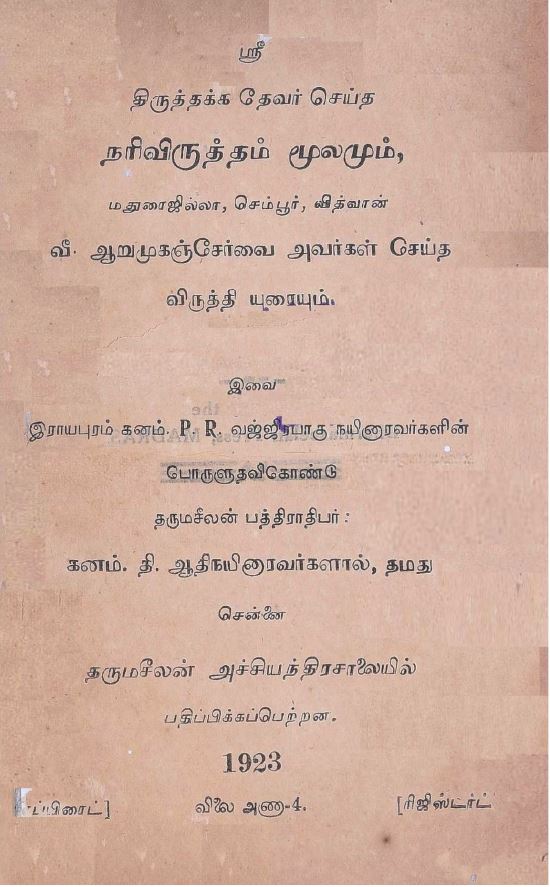 ஸ்ரீ
திருத்தக்க தேவர் செய்த
நரிவிருத்தம் மூலமும்,
மதுரைஜில்லா, செம்பூர், வித்வான்
வீ. ஆறுமுகஞ்சேர்வை அவர்கள் செய்த
விருத்தி யுரையும்.
இவை
இராயபுரம் கனம். P. R. நயினாரவர்களின்
பொருளுதவிகொண்டு
தருமசீலன் பத்திராதிபர் :
கனம். தி. ஆதிநயினாரவர்களால், தமது
சென்னை
தருமசீலன் அச்சியந்திரசாலையில்
பதிப்பிக்கப்பெற்றன.
1923
விலை அணா-4. [ரிஜிஸ்டர்ட்